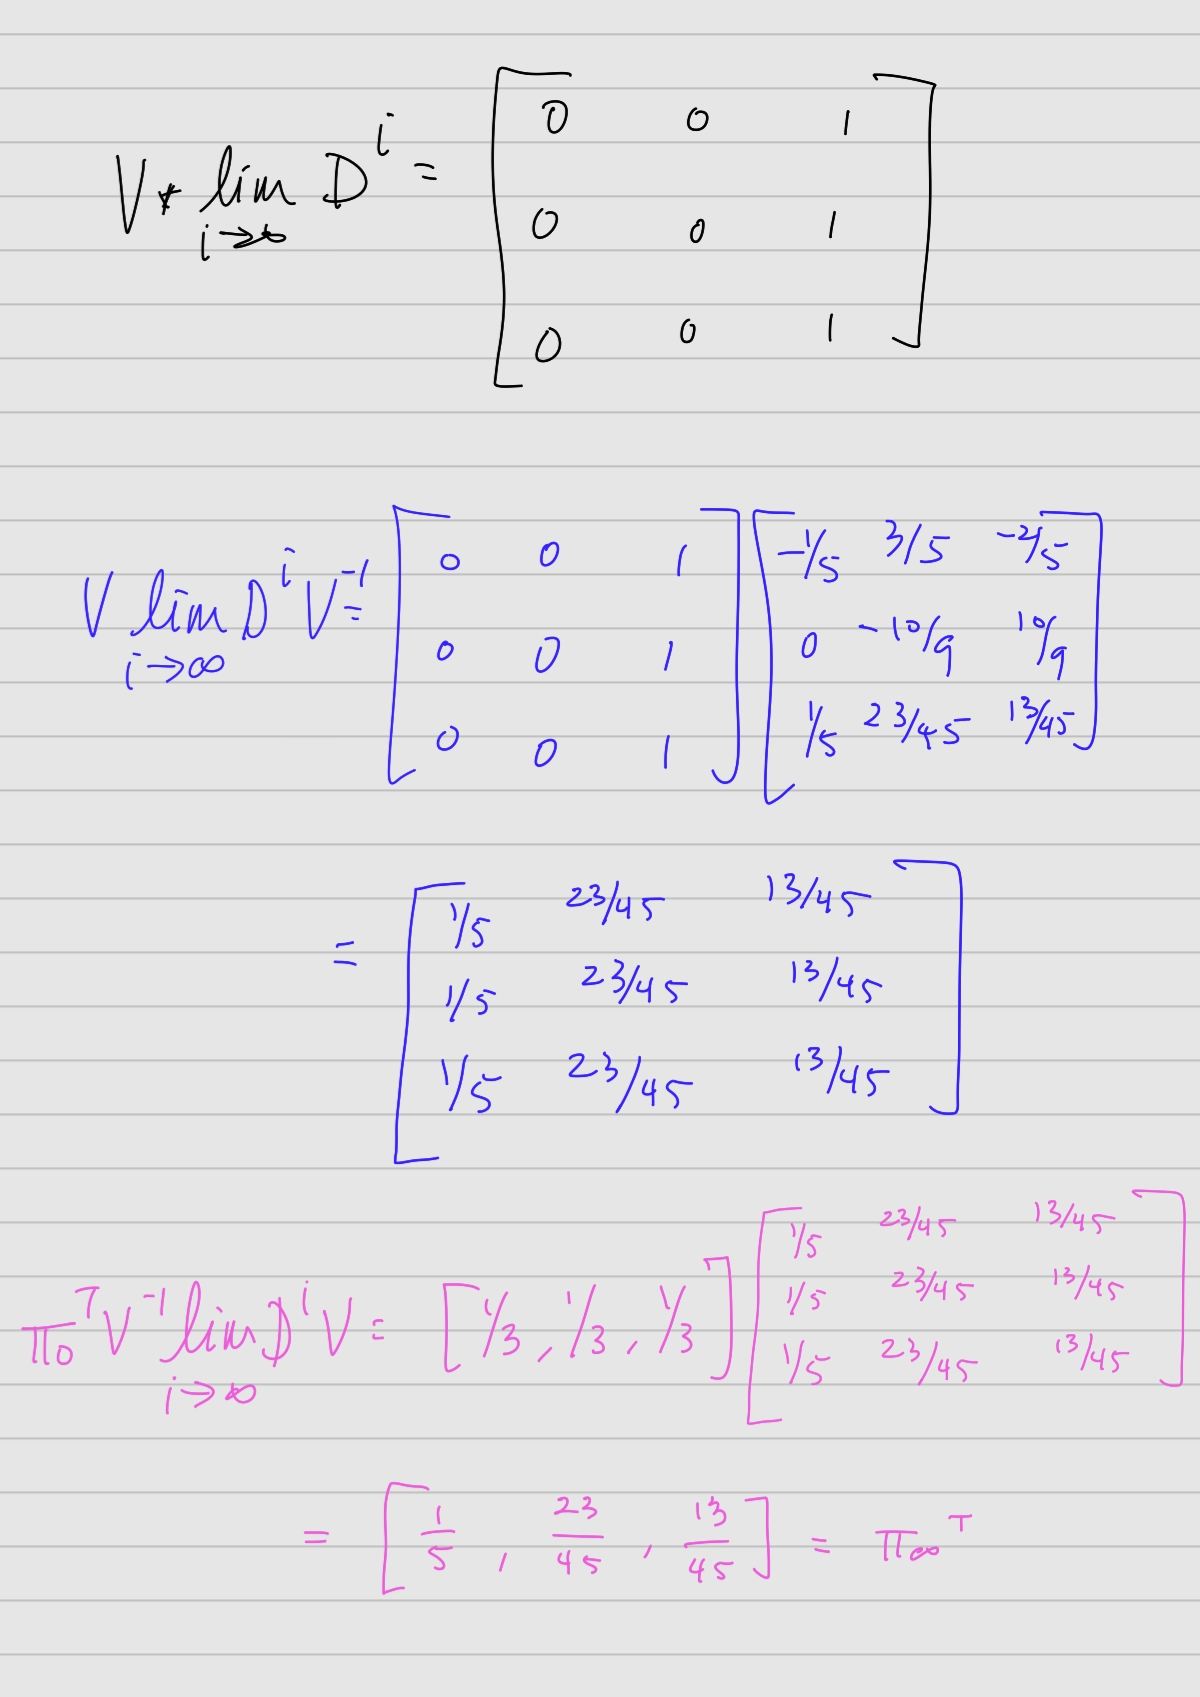 V * lim D^i = [ 0 0 1
i→∞
0 0 1
0 0 1 ]
V lim D^i V^-1 = [ 0 0 1 ] [ -1/5 3/5 -2/5
i→∞
0 0 1 0 -10/9 10/9
0 0 1 1/5 23/45 13/45 ]
= [ 1/5 23/45 13/45
1/5 23/45 13/45
1/5 23/45 13/45 ]
π0^T V^-1 lim D^i V = [1/3, 1/3, 1/3] [ 1/5 23/45 13/45
i→∞
1/5 23/45 13/45
1/5 23/45 13/45 ]
= [ 1/5, 23/45, 13/45 ] = π∞^T